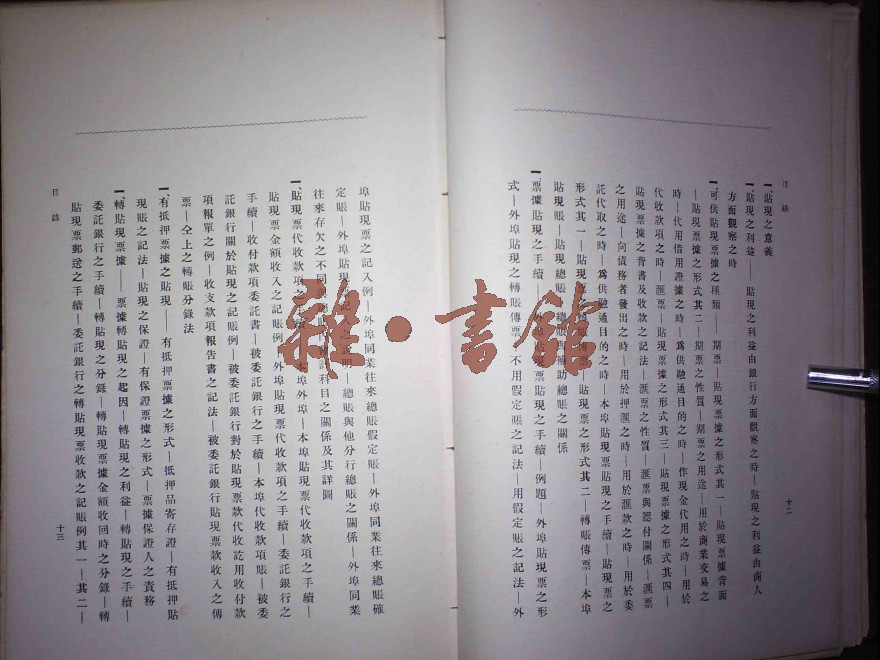 目錄
十二
一、貼現之意義
一、貼現之利益——貼現之利益由銀行方面觀察之時—貼現之利益由商人
方面觀察之時
一、可供貼現票據之種類——期票—貼現票據之形式其一—貼現票據背面
—貼現票據之形式其二—期票之性質—期票之用途—用於商業交易之
時—代用借用證據之時—爲供融通目的之時—作現金代用之時—用於
代收款項之時—匯票—貼現票據之形式其三—貼現票據之形式其四—
貼現票據之背書及收款之記法—匯票之性質—匯票與認付關係—匯票
之用途—向債務者發出之時—用於押匯之時—用於匯款之時—用於委
託代取之時—爲供融通目的之時—本埠貼現票據貼現之手續—貼現票之
形式其一—貼現票
貼現票之形式其二—轉賬傳票—本埠
貼現賬—貼現總賬
總賬與補助總賬之關係
一、票據貼現之手續—外埠
票貼現之手續—例題—外埠貼現票之形
式—外埠貼現之轉賬傳票—不用假定賬之記法—用假定賬之記法—外
埠貼現票之記入例—外埠同業往來總賬假定賬—外埠同業往來總賬確
定賬—外埠貼現
說明—總賬與他分行總賬之關係—外埠同業
往來存欠之不同
科目之關係及其詳圖
一、貼現票代收款項之手續—本埠貼現票代收款項之手續—
貼現票金額收入之記賬例—外埠貼現票代收款項之手續—委託銀行之
手續—收付款項委託書—被委託銀行之手續—本埠代收款項賬—被委
託銀行關於貼現之記賬例—被委託銀行對於貼現票款代收訖用收付款
項報單之例—收支款項報告書之記法—被委託銀行貼現票款收入之傳
票—仝上之轉賬分錄法
一、有抵押票據之貼現——有抵押票據之形式—抵押品寄存證—有抵押貼
現賬之記法—貼現之保證—有保證票據之形式—票據保證人之責務
一、轉貼現票據——票據轉貼現之起因—轉貼現之利益—轉貼現之手續—
委託銀行之手續—轉貼現之分錄—轉貼現票據金額收回時之分錄—轉
貼現票郵送之手續—委託銀行之轉貼現票收款之記賬例其一—其二—
目錄
十三
雜·書館